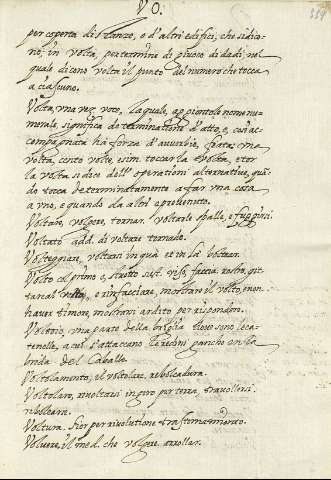 VO.
per coperta di stanze, o d'altri edifici, che si dico-
no, in volta, per termine di giuoco di dadi, nel
quale dicono volta il punto del numero che tocca
a ciascuno.
Volta, una vez, voto, la quale, appiontole nome nu-
merale, significa determinatione d'atto, e, così ac-
compagnata hà forza d'avverbio, fiata: una
volta, cento volte, e sim. toccar la volta, e tor
la volta si dice dell'operationi alternative, quã-
do tocca determinatamente a far una cosa
a uno, e quando da altri è prevenuto.
Voltare, volgere, tornar. voltar le spalle, e fuggire.
Voltato add. di voltare tornado.
Volteggiare, voltarsi in quà et in là voltear.
Volto col primo o, stretto sust. viso, faccia. rostro, git-
tar nel volto, e rinfacciare, mostrar il volto, e non
haver timore, mostrarsi ardito per rispondere.
Voltoio, una parte della briglia dove sono le ca-
tenelle, a cui s'attaccano le redini gancho en la
brida del Caballo.
Voltolamento, il voltolare, rebolcadura.
Voltolare, rivoltarsi in giro per terra, travollersi.
rebolcarse.
Voltura. fior per rivolutione trastornamento.
Volvere, il med. che volgere arrollar.